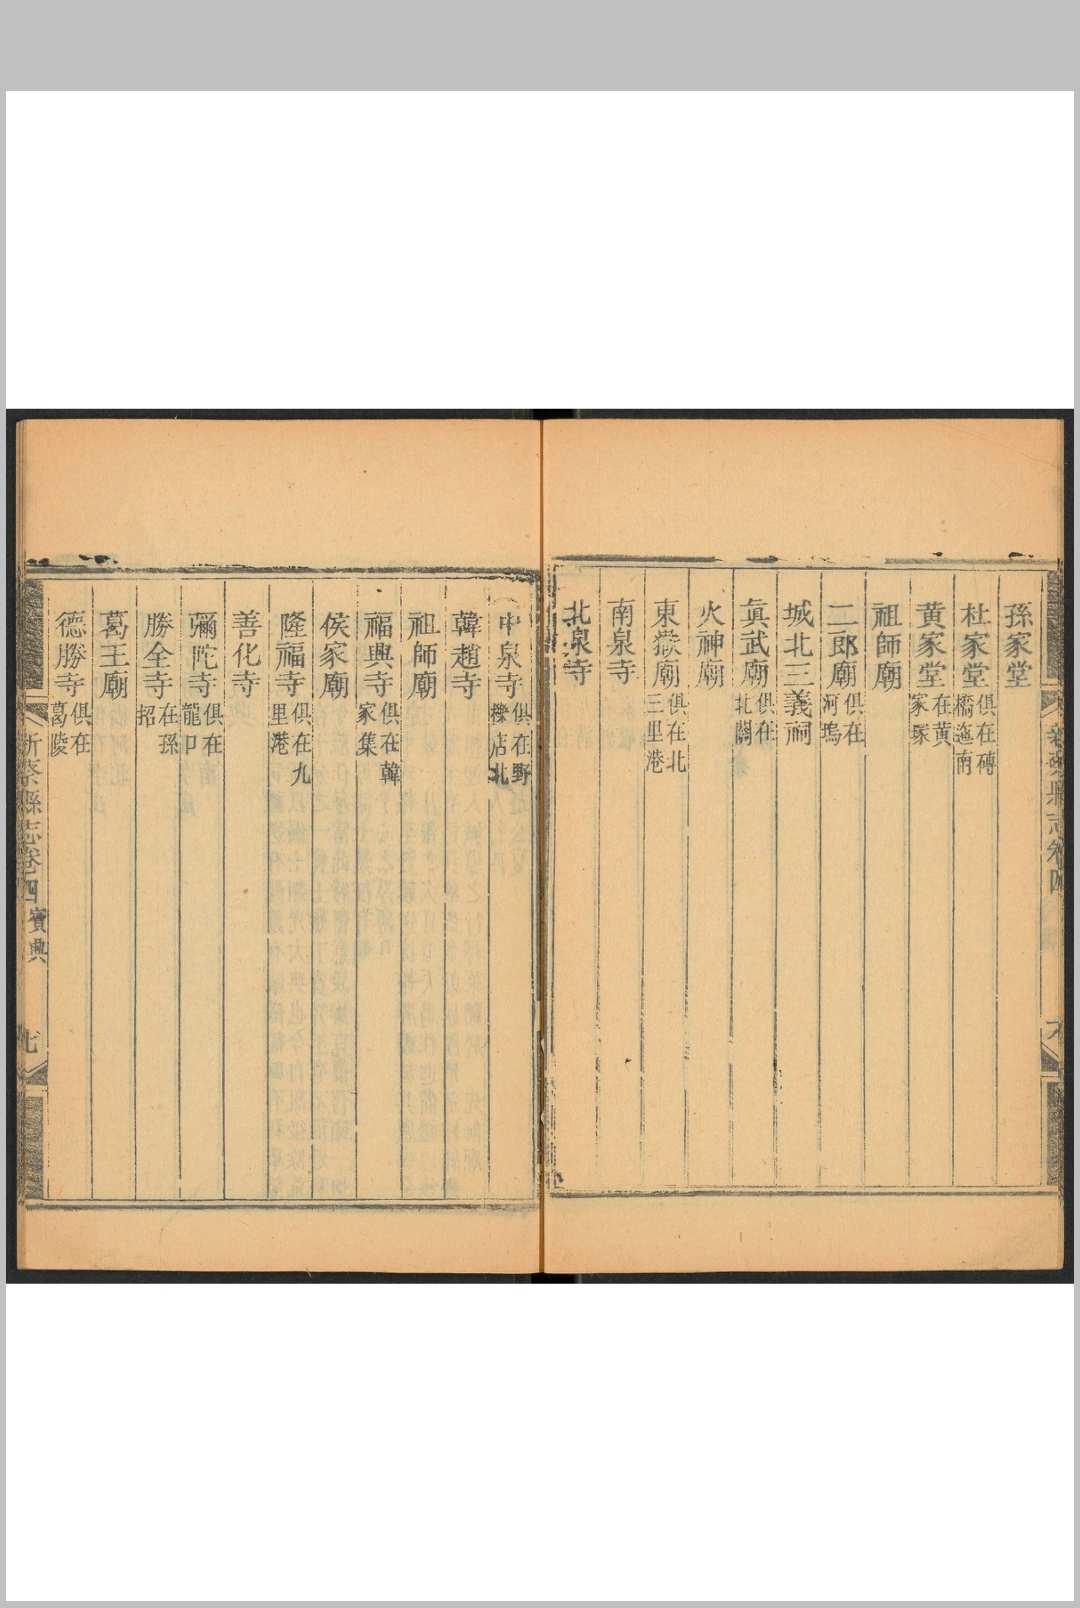 孫家堂
杜家堂 俱在磚橋迤南
黃家堂 在黃家塚
祖師廟
二郎廟 俱在河塢
城北三義祠
眞武廟 俱在北關
火神廟
東嶽廟 俱在北三里港
南泉寺
北泉寺
中泉寺 俱在野櫟店北
韓趙寺
祖師廟
福興寺 俱在韓家集
侯家廟
隆福寺 俱在九里港
善化寺
彌陀寺 俱在龍口
勝全寺 在孫招
葛王廟
德勝寺 俱在葛陵
新蔡縣志卷四 賓典
七